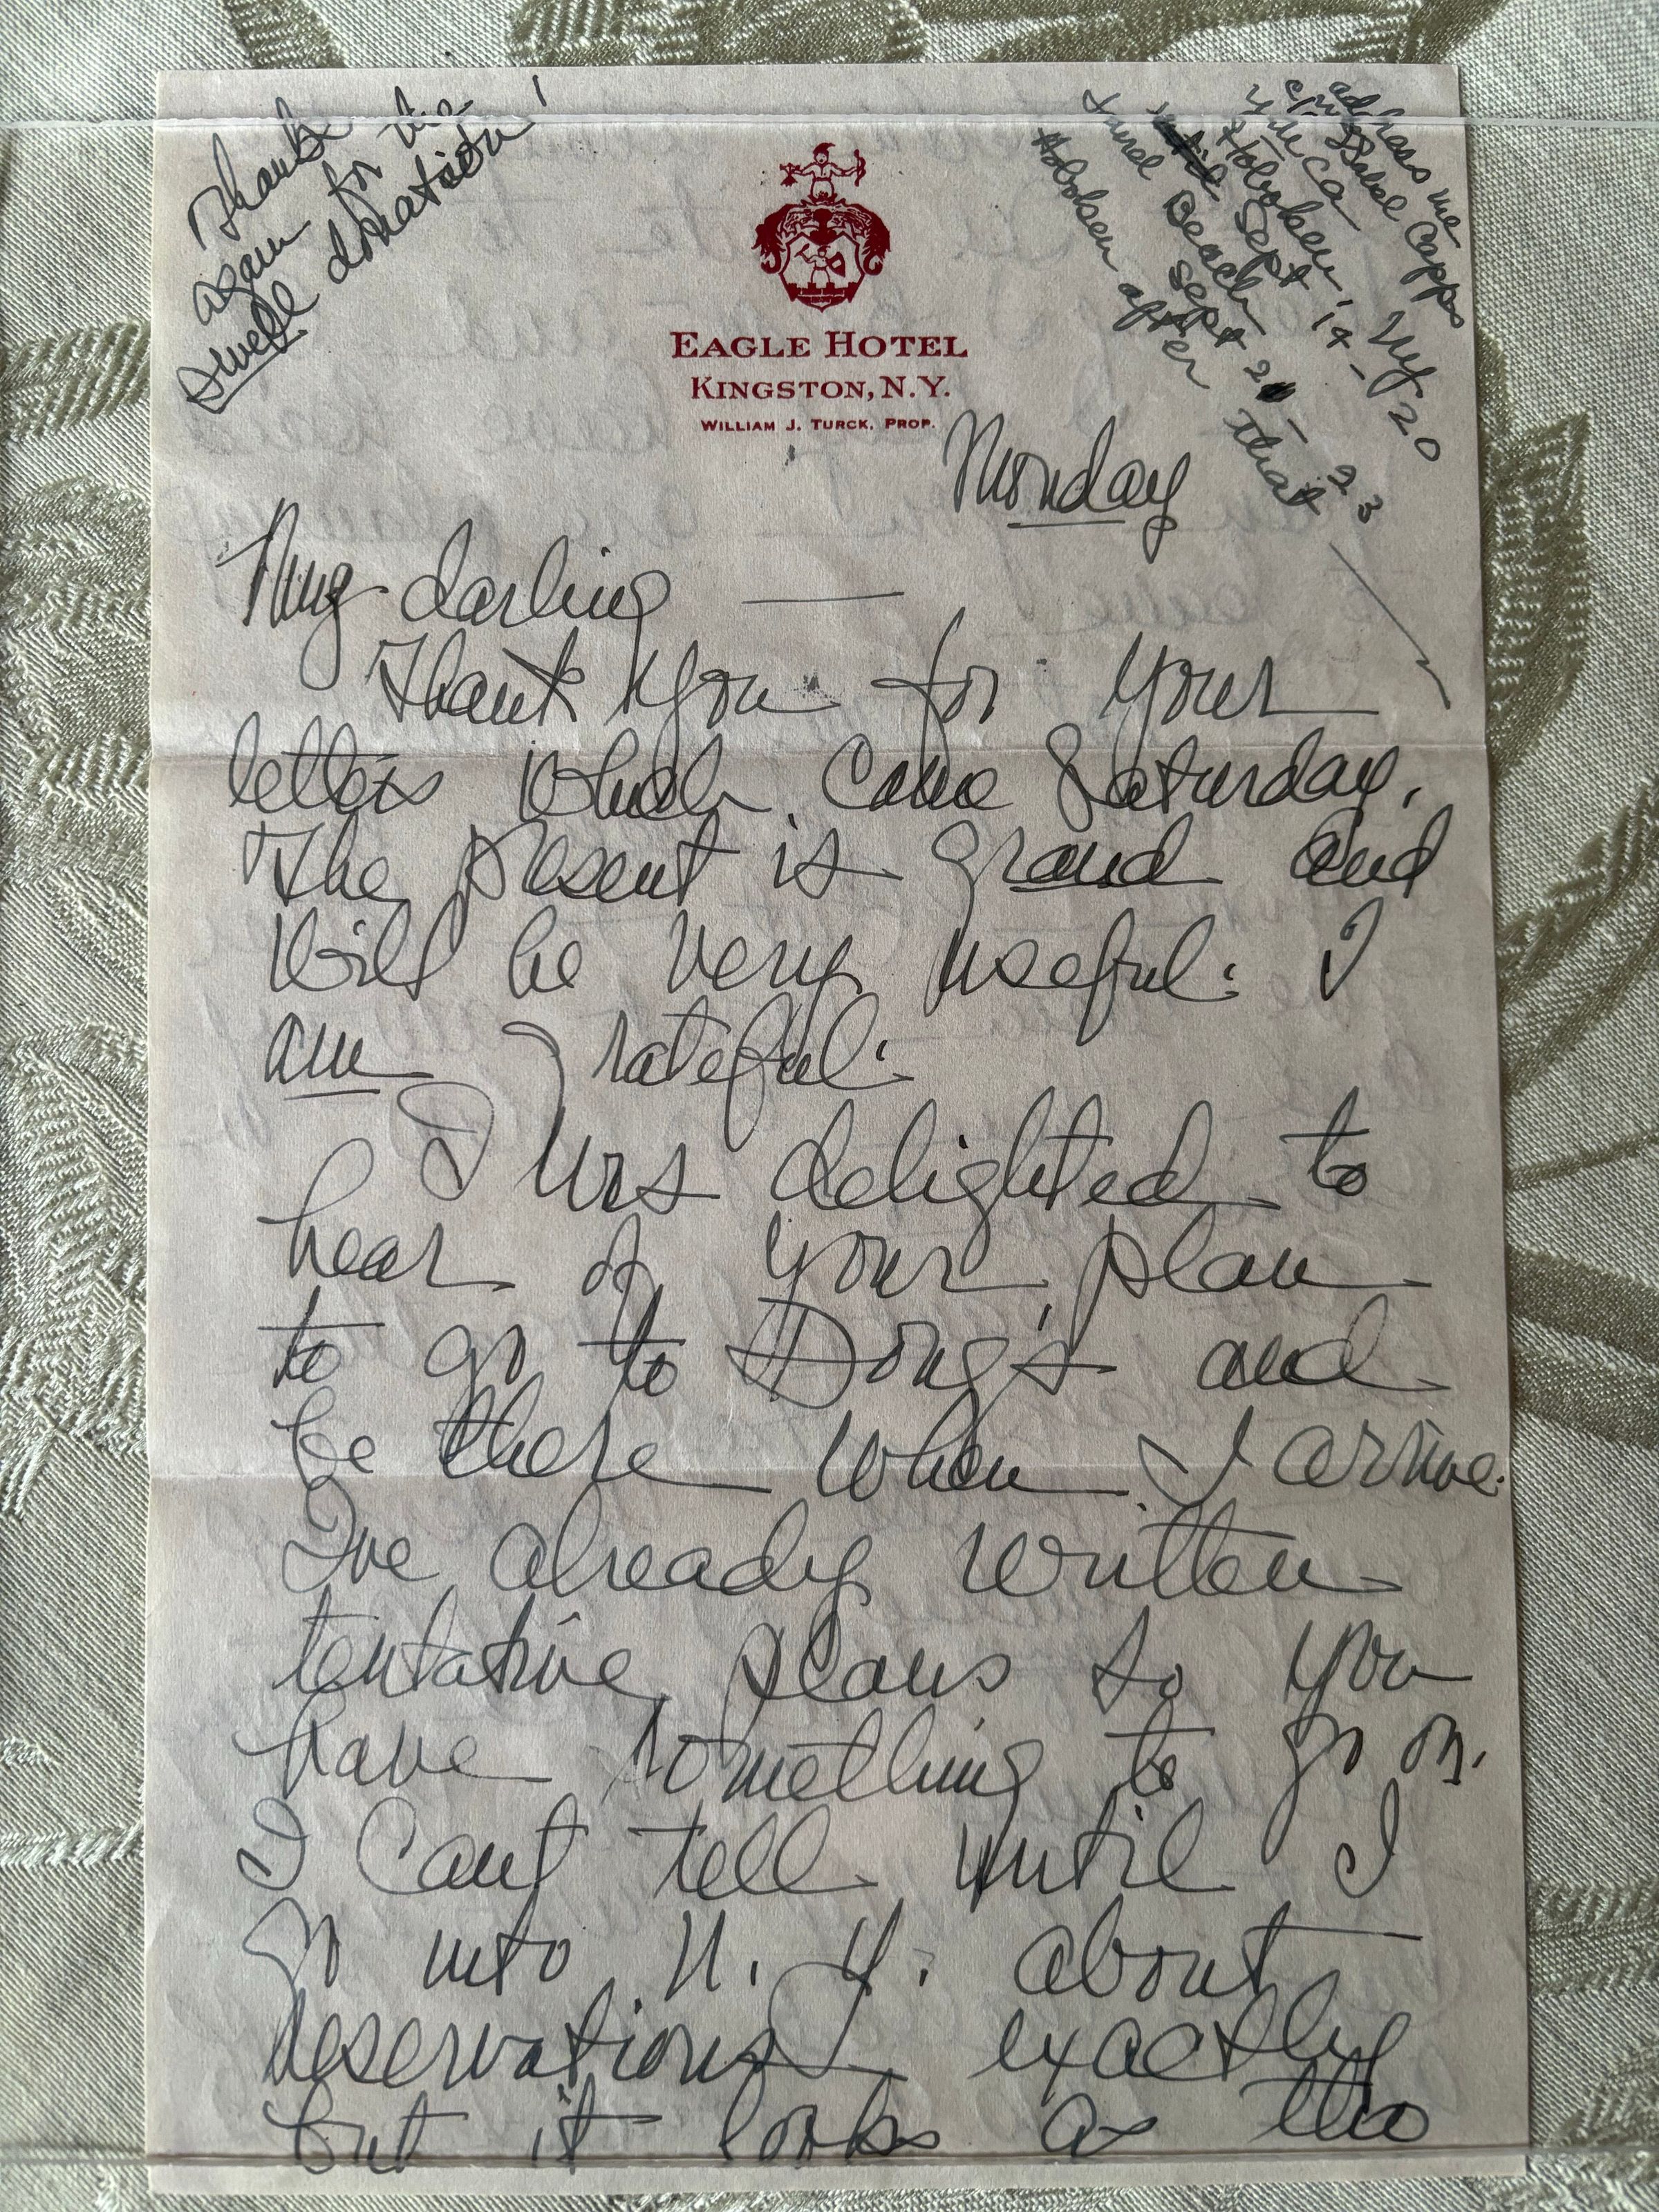 Thanks
again for the
swell donation!
address me
c/o Babe Capps
Hoboken, NJ
Sept 14 - 20
Beach
Sept 21 - 23
Hoboken after that
EAGLE HOTEL
KINGSTON, N.Y.
WILLIAM J. TURCK, PROP.
Monday
My darling —
Thank you for your
letters which came Saturday.
The present is grand and
will be very useful. I
am grateful.
I was delighted to
hear of your plan
to go to Doug's and
be there when I arrive.
I've already written
tentative plans so you
have something to go on.
I can't tell until I
go into N. Y. about
reservations exactly
but it looks as tho